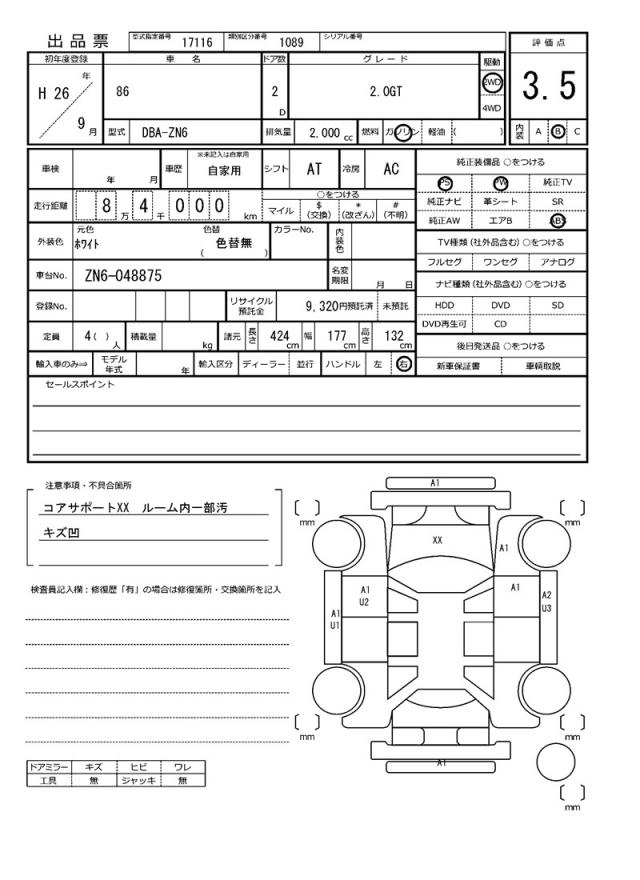 出品票 型式指定番号 17116 類別区分番号 1089 シリアル番号
初年度登録 車 名 ドア数 グレード 駆動 評価点
H 26 年 9 月 86 2 D 2.0GT 2WD 4WD 3.5
型式 DBA-ZN6 排気量 2,000 cc 燃料 ガソリン 軽油 ( ) 内装 A B C
車検 年 月 車歴 ※未記入は自家用 自家用 シフト AT 冷房 AC
走行距離 8 万 4 千 0 0 0 km
○をつける
マイル $ (交換) * (改ざん) # (不明)
外装色 元色 ホワイト 色替 色替無 ( ) カラーNo. 内装色
車台No. ZN6-048875 名変期限 月 日
登録No. リサイクル預託金 9,320円預託済 未預託
定員 4 ( ) 人 積載量 kg 諸元 長さ 424 cm 幅 177 cm 高さ 132 cm
輸入車のみ⇒ モデル年式 年 輸入区分 ディーラー 並行 ハンドル 左 右
純正装備品 ○をつける
PS PW 純正TV
純正ナビ 革シート SR
純正AW エアB ABS
TV種類 (社外品含む) ○をつける
フルセグ ワンセグ アナログ
ナビ種類 (社外品含む) ○をつける
HDD DVD SD
DVD再生可 CD
後日発送品 ○をつける
新車保証書 車輌取説
セールスポイント
注意事項・不具合箇所
コアサポートXX ルーム内一部汚
キズ凹
検査員記入欄：修復歴「有」の場合は修復箇所・交換箇所を記入
ドアミラー キズ ヒビ ワレ
工具 無 ジャッキ 無
A1
mm
mm
XX
A1
A1
U2
A1
A1
U1
A2
U3
mm
mm
A1
mm